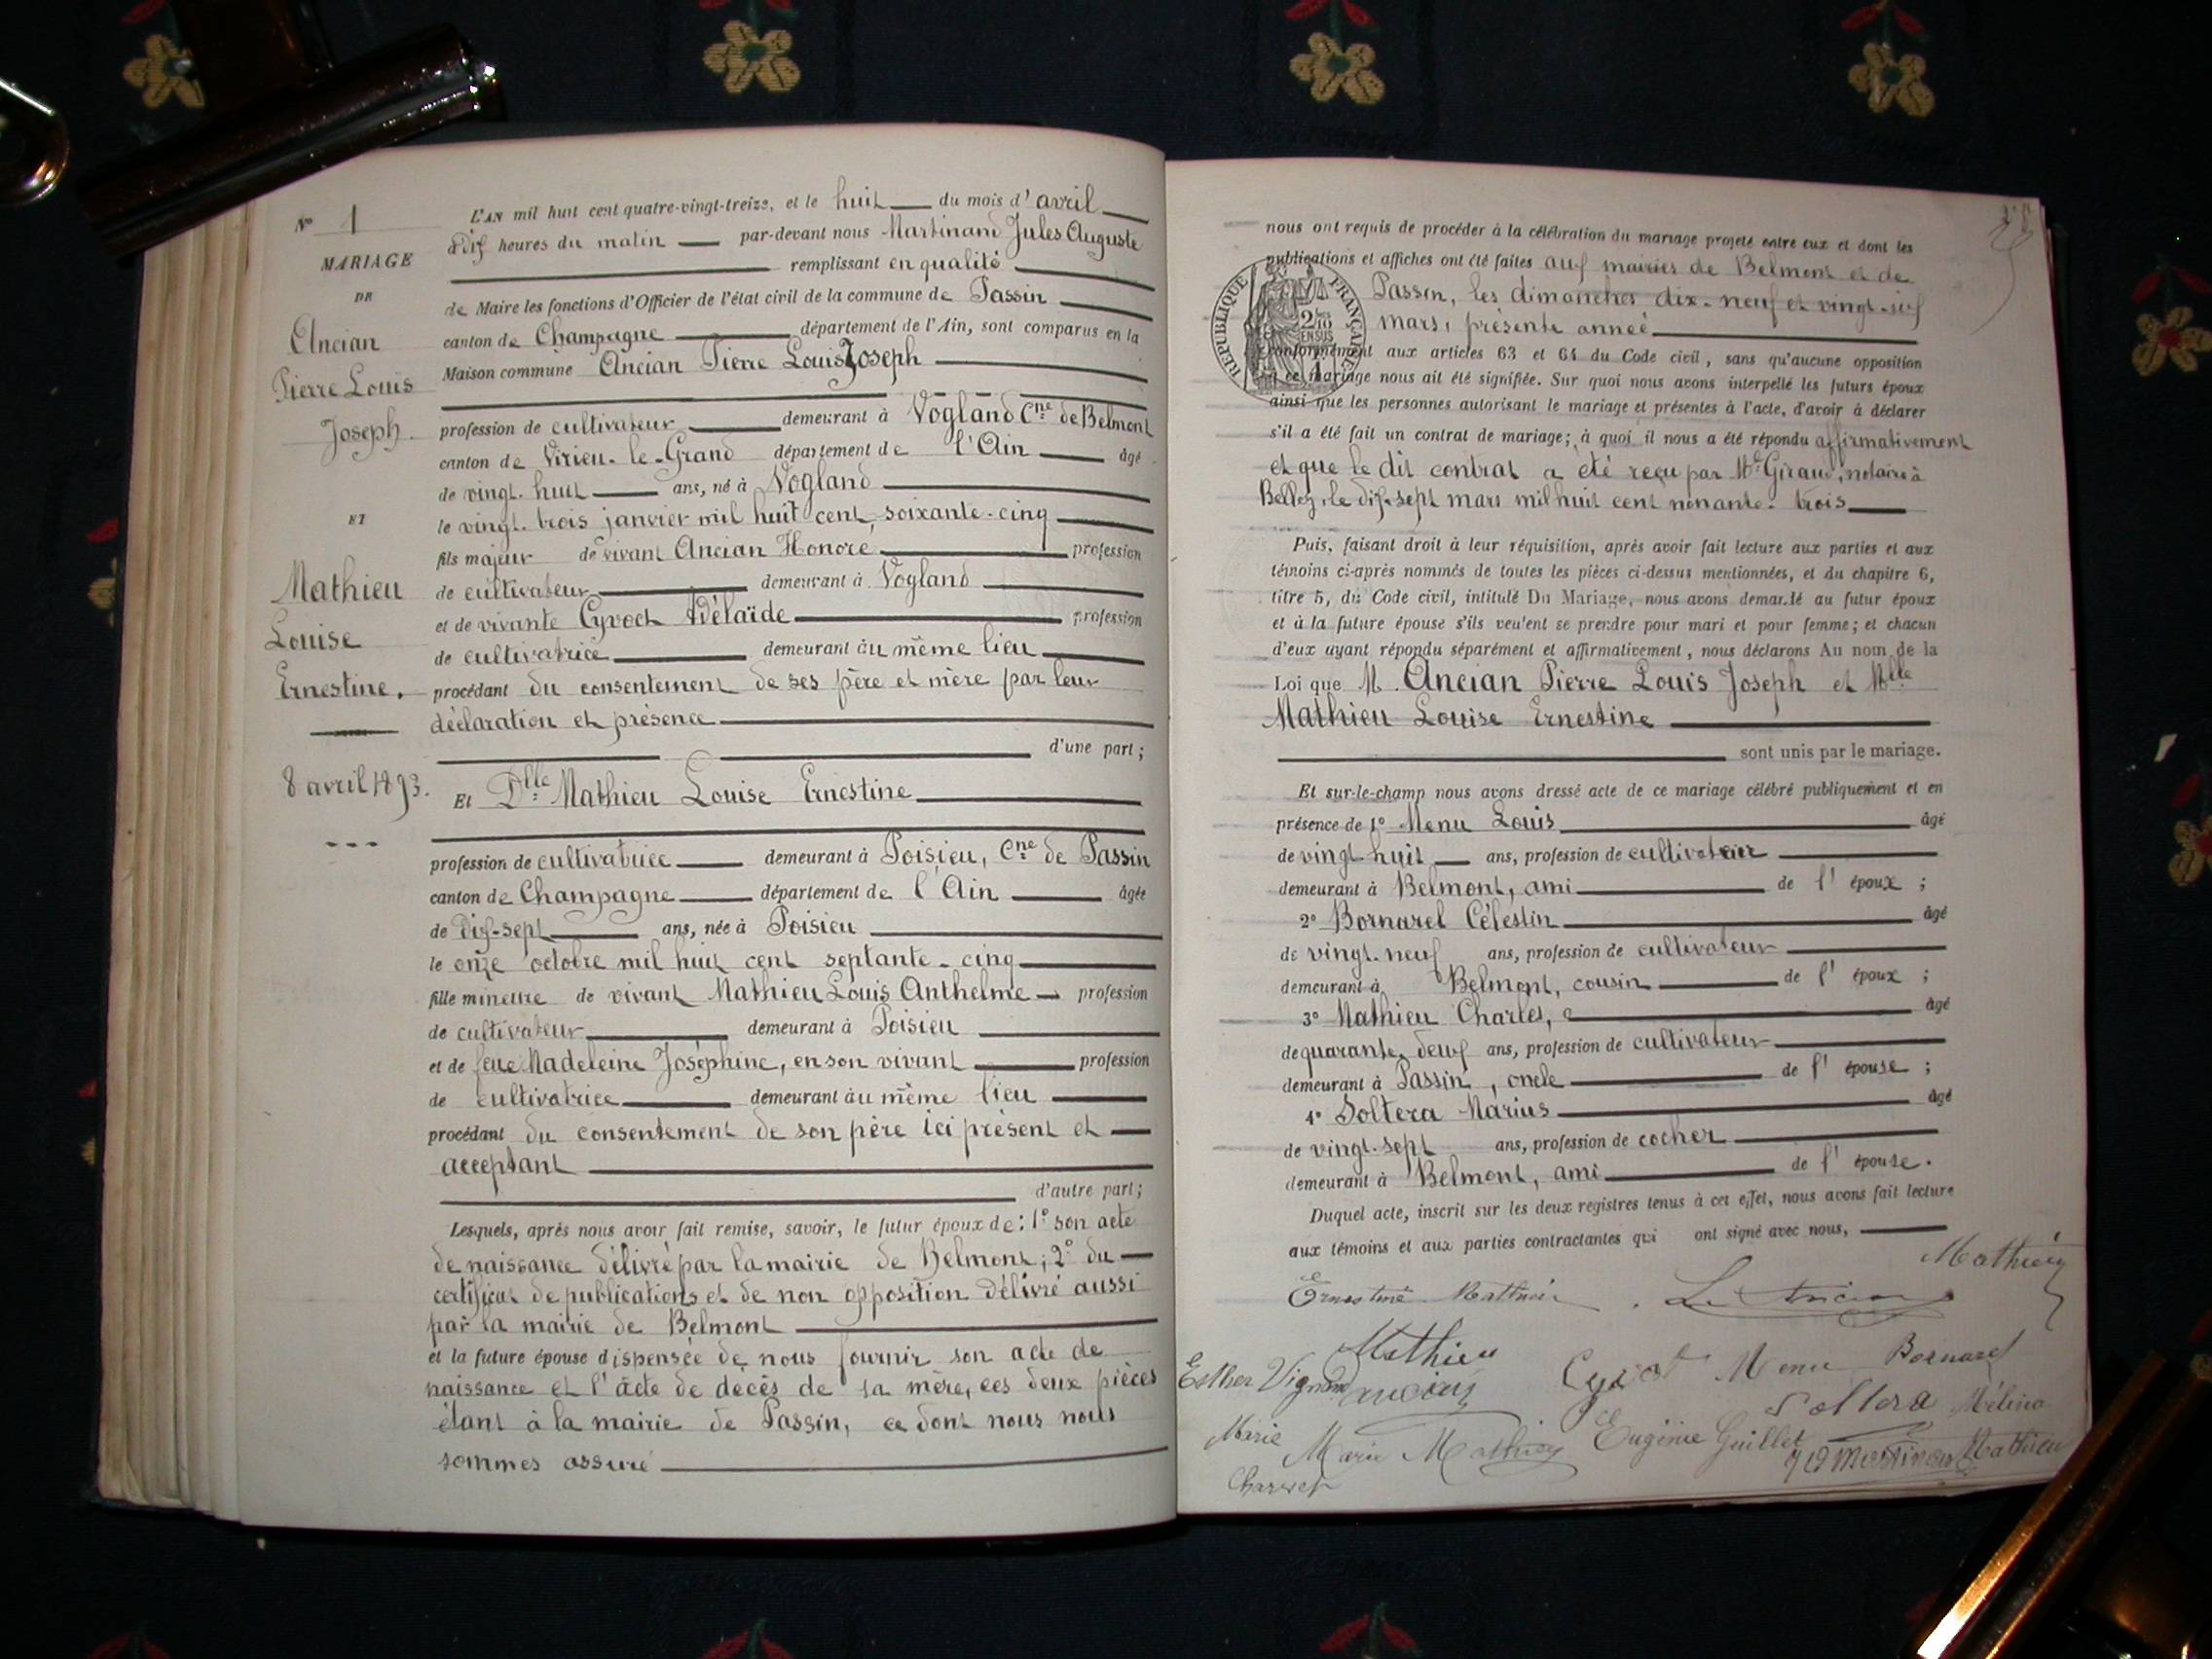 N° 1
MARIAGE
DE
Ancian
Pierre Louis
Joseph.
ET
Mathieu
Louise
Ernestine.
8 avril 1893.
L'AN mil huit cent quatre-vingt-treize, et le huit du mois d'avril
à dix heures du matin par-devant nous Martinand Jules Auguste
remplissant en qualité
de Maire les fonctions d'Officier de l'état civil de la commune de Passin
canton de Champagne département de l'Ain, sont comparus en la
Maison commune Ancian Pierre Louis Joseph
profession de cultivateur demeurant à Vogland Cne de Belmont
canton de Virieu-le-Grand département de l'Ain âgé
de vingt-huit ans, né à Vogland
le vingt-trois janvier mil huit cent soixante-cinq
fils majeur de vivant Ancian Honoré profession
de cultivateur demeurant à Vogland
et de vivante Cyvoct Adélaïde profession
de cultivatrice demeurant au même lieu
procédant du consentement de ses père et mère par leur
déclaration et présence
d'une part;
Et Dlle Mathieu Louise Ernestine
profession de cultivatrice demeurant à Poisieu, Cne de Passin
canton de Champagne département de l'Ain âgée
de dix-sept ans, née à Poisieu
le onze octobre mil huit cent septante-cinq
fille mineure de vivant Mathieu Louis Anthelme profession
de cultivateur demeurant à Poisieu
et de feue Madeleine Joséphine, en son vivant profession
de cultivatrice demeurant au même lieu
procédant du consentement de son père ici présent et
acceptant
d'autre part;
Lesquels, après nous avoir fait remise, savoir, le futur époux de: 1° son acte
de naissance délivré par la mairie de Belmont; 2° du
certificat de publications et de non opposition délivré aussi
par la mairie de Belmont
et la future épouse dispensée de nous fournir son acte de
naissance et l'acte de décès de sa mère, ces deux pièces
étant à la mairie de Passin, ce dont nous nous
sommes assuré
nous ont requis de procéder à la célébration du mariage projeté entre eux et dont les
publications et affiches ont été faites aux mairies de Belmont et de
Passin, les dimanches dix-neuf et vingt-six
mars, présente année
RÉPUBLIQUE FRANÇAISE
conformément aux articles 63 et 64 du Code civil, sans qu'aucune opposition
à ce mariage nous ait été signifiée. Sur quoi nous avons interpellé les futurs époux
ainsi que les personnes autorisant le mariage et présentes à l'acte, d'avoir à déclarer
s'il a été fait un contrat de mariage; à quoi il nous a été répondu affirmativement
et que le dit contrat a été reçu par Me Giraud, notaire à
Belley, le dix-sept mars mil huit cent nonante-trois
Puis, faisant droit à leur réquisition, après avoir fait lecture aux parties et aux
témoins ci-après nommés de toutes les pièces ci-dessus mentionnées, et du chapitre 6,
titre 5, du Code civil, intitulé Du Mariage, nous avons demandé au futur époux
et à la future épouse s'ils veulent se prendre pour mari et pour femme; et chacun
d'eux ayant répondu séparément et affirmativement, nous déclarons Au nom de la
Loi que M. Ancian Pierre Louis Joseph et Mlle
Mathieu Louise Ernestine
sont unis par le mariage.
Et sur-le-champ nous avons dressé acte de ce mariage célébré publiquement et en
présence de 1° Menu Louis âgé
de vingt-huit ans, profession de cultivateur
demeurant à Belmont, ami de l'époux;
2° Bornarel Célestin âgé
de vingt-neuf ans, profession de cultivateur
demeurant à Belmont, cousin de l'époux;
3° Mathieu Charles, âgé
de quarante-deux ans, profession de cultivateur
demeurant à Passin, oncle de l'épouse;
4° Soltera Marius âgé
de vingt-sept ans, profession de cocher
demeurant à Belmont, ami de l'épouse.
Duquel acte, inscrit sur les deux registres tenus à cet effet, nous avons fait lecture
aux témoins et aux parties contractantes qui ont signé avec nous,
Mathieu
Ernestine Mathieu Ls Ancian
Mathieu
Esther Vignand ancian Menu Bornarel
Soltera Mélina
Marie Marie Mathieu Eugénie Guillet
Martinand Mathieu
Charvet